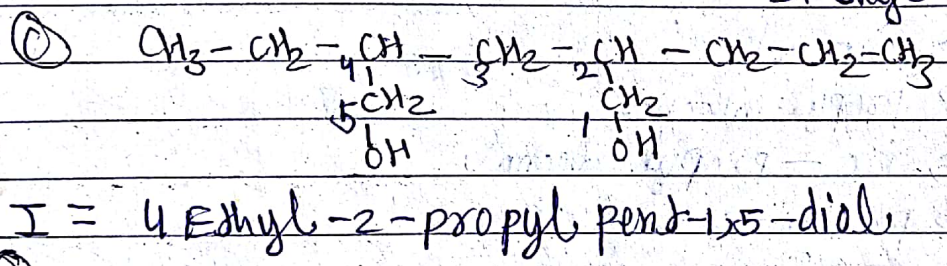 (C) CH3 – CH2 – 4CH – 3CH2 – 2CH – CH2 – CH2 – CH3
5CH2 1CH2
OH OH
I = 4 Ethyl-2-propyl pent-1,5-diol